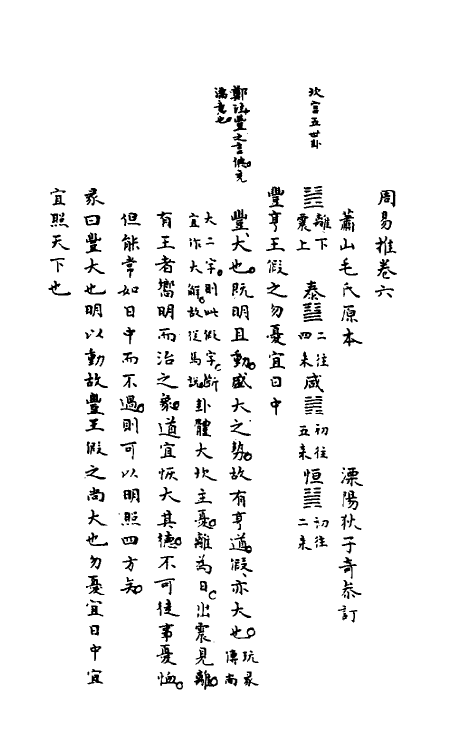 周易推卷六
蕭山毛氏原本 溧陽狄子奇叅訂
坎宫五世卦
䷶離下震上 泰䷊二往四來 咸䷞初往五來 恒䷟初往二來
豐亨王假之勿憂宜日中
鄭注豐之言倎充滿意也
豐、大也。既明且動。盛大之勢。故有亨道。假、亦大也。玩彖傳尚
大二字。則此假字。斷宜作大解。故從馬説。卦體大坎主憂。離為日。出震見離。
有王者嚮明而治之象。道宜恢大其德。不可徒事憂恤。
但能常如日中而不過。則可以明照四方矣。
彖曰豐大也明以動故豐王假之尚大也勿憂宜日中宜
宜照天下也